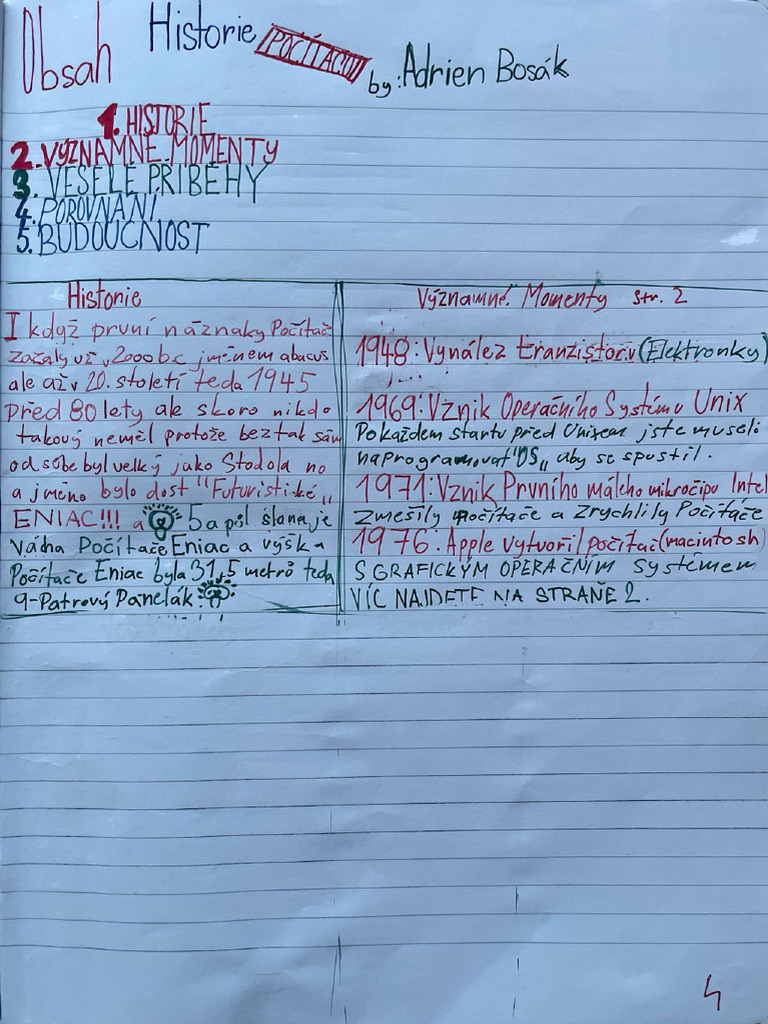 Obsah Historie POČÍTAČŮ by: Adrien Bosák
1. HISTORIE
2. VÝZNAMNÉ MOMENTY
3. VESELÉ PŘÍBĚHY
4. POROVNÁNÍ
5. BUDOUCNOST
Historie
I když první náznaky Počítač
začaly už v 2000 b.c jménem abacus
ale až v 20. století teda 1945
Před 80 lety ale skoro nikdo
takový neměl protože beztak sám
od sobe byl velký jako Stodola no
a jméno bylo dost "Futuristické"
ENIAC!!! a 5 a půl slona je
Váha Počítače Eniac a výška
Počítače Eniac byla 31,5 metrů teda
9-Patrový Panelák.
Významné Momenty str. 2
1948: Vynález tranzistorů (Elektronky)
1969: Vznik Operačního Systému Unix
Pokaždém startu před Unixem jste museli
naprogramovat "OS" aby se spustil.
1971: Vznik Prvního málého mikročipu Intel
Zmešily počítače a Zrychlily Počítače
1976: Apple vytvořil počítač (macintosh)
S GRAFICKÝM OPERAČNÍM Systémem
VÍC NAJDETE NA STRAŇE 2.